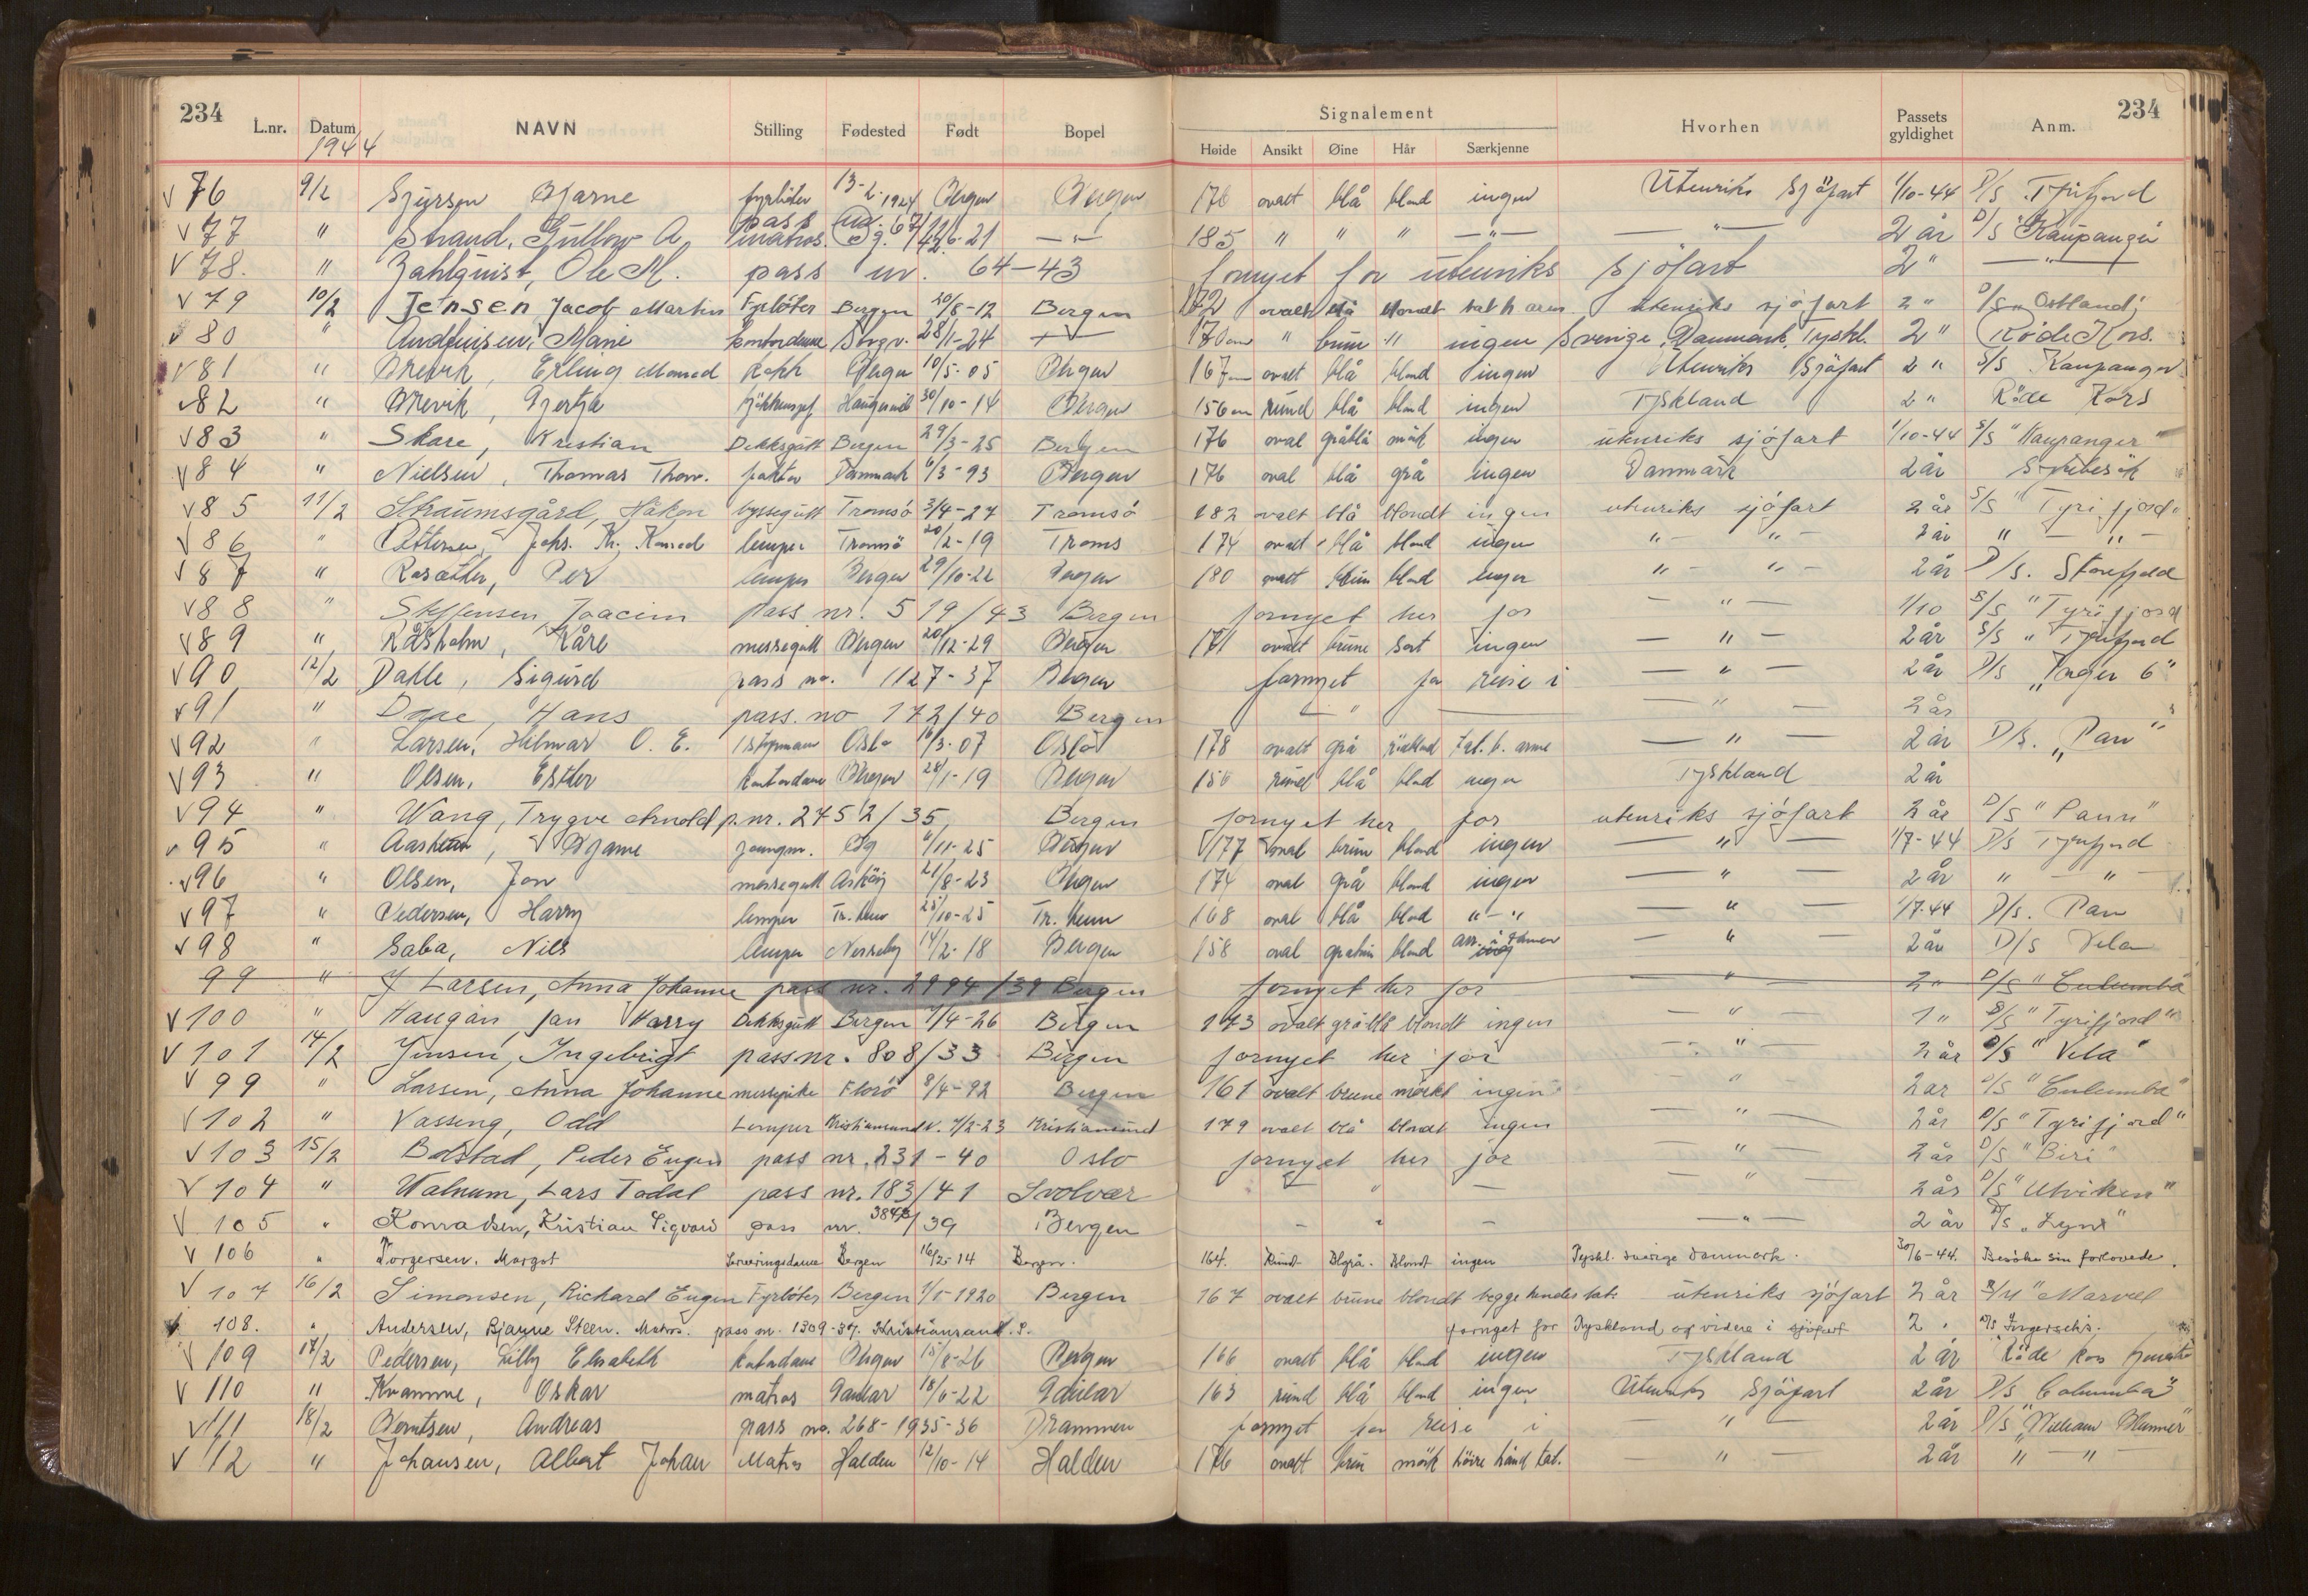 234
L.nr. Datum NAVN Stilling Fødested Født Bopel
1944
Signalement
Høide Ansikt Øine Hår Særkjenne Hvorhen Passets gyldighet Anm.
234
V 76 9/2 Sjursen Bjarne fyrböter 13-2-1924 Bergen Bergen 176 ovalt blå blond ingen Utenriks Sjöfart 1/10-44 D/S Tyrifjord
V 77 " Strand, A. matros pass 21 — " — 185 " " " — " — — " — 2 år D/S "Kaupanger
V 78. " Zahlquist, Ole M. pass nr. 64-43 fornyet for utenriks sjöfart 2 " — " —
V 79 10/2 Jensen Jacob Martin Fyrböter Bergen 20/8-12 Bergen 172 ovalt blå blondt tat h arm utenriks sjöfart 2 " D/S "Ostland"
V 80 " Marie kontordame 28/1-24 170 cm " brun " ingen Sverige, Danmark, Tyskl. 2 " Röde Kors.
V 81 " Brevik, Erling Monrad Kokk Bergen 10/5-05 Bergen 167 cm ovalt blå blond ingen Utenriks Sjöfart 2 " S/S Kaupanger
V 82 " Brevik, Gjertja 30/10-14 Bergen 156 cm rund blå blond ingen Tyskland 2 " Röde Kors
V 83 " Skare, Kristian Dekksgutt Bergen 29/3-25 Bergen 176 oval gråblå mörk ingen utenriks sjöfart 1/10-44 S/S
V 84 " Nielsen, Thomas Thom. faktor Danmark 6/3-93 Bergen 176 oval blå grå ingen Danmark 2 år
V 85 11/2 Straumsgård, Håkon byssegutt Tromsö 3/4-27 Tromsö 182 ovalt blå blondt ingen utenriks sjöfart 2 år S/S "Tyrifjord"
V 86 " Pettersen, Johs. Kr. Konrad lemper Tromsö 20/2-19 Troms 174 ovalt blå blond ingen " - " - 2 år " - " -
V 87 " Per lemper Bergen 29/10-22 Bergen 180 ovalt brun blond ingen " - " - 2 år D/S.
V 88 " Steffensen Joacim pass nr. 519/43 Bergen fornyet her for — " — 1/10 S/S "Tyrifjord
V 89 " Råsholm, Kåre messegutt Bergen 20/12-29 Bergen 171 ovalt brune sort ingen — " — 2 år S/S "Tyrifjord
V 90 12/2 Dahle, Sigurd pass no. 1127-37 Bergen fornyet for reise i — " — 2 år D/S "Inger 6"
V 91 " Hans pass. no 172/40 Bergen — " — — " — 2 år "
V 92 " Larsen, Hilmar O. E. 1 styrmann Oslo 16/3-07 Oslo 178 ovalt grå tat. b. arme — " — 2 år D/S. "Pan"
V 93 " Olsen, Esther Kontordame Bergen 28/1-19 Bergen 156 rund blå blond ingen Tyskland 2 år
V 94 " Wang, Trygve Arnold p.nr. 2752/35 Bergen fornyet her for utenriks sjöfart 2 år D/S "Pann"
V 95 " Bjarne jungm. Bg 6/11-25 Bergen 177 oval brun blond ingen — " — 1/7-44 D/S Tyrifjord
V 96 " Olsen, Jon messegutt Asköy 21/8-23 Bergen 174 oval grå blond ingen — " — 2 år " - " -
V 97 " Pedersen, Harry lemper Tr.heim 25/10-25 Tr.heim 168 oval blå blond " - " — " — 1/7-44 D/S. Pan
V 98 " Saba, Nils lemper Nesseby 14/2-18 Bergen 158 oval blond arr. — " — 2 år D/S Vela
99 " Larsen, Anna Johanne pass nr. 2994/39 Bergen fornyet her for — " — 2 " D/S "Culumba
V 100 " Haugan, Jan Harry Dekksgutt Bergen 7/4-26 Bergen 173 ovalt gråblå blondt ingen — " — 1 " S/S "Tyrifjord"
V 101 14/2 Jensen, Ingebrigt pass nr. 808/33 Bergen fornyet her for — " — 2 år D/S "Vela"
V 99 " Larsen, Anna Johanne messepike Florö 8/4-92 Bergen 161 ovalt brune mörkt ingen — " — 2 år D/S "Culumba"
V 102 " Vasseng, Odd Lemper Kristiansund N. 7/2-23 Kristiansund 179 ovalt blå blondt ingen — " — 2 år D/S "Tyrifjord"
V 103 15/2 Bolstad, Peder Eugen pass nr. 231-40 Oslo fornyet her for — " — 2 år D/S "Biri"
V 104 " Walnum, Lars Todal pass nr. 183/41 Svolvær — " — — " — 2 år D/S "Utviken"
V 105 " Konradsen, Kristian Sigvard pass nr. 3847/39 Bergen — " — — " — 2 år D/S "Lynx"
V 106 " Torgersen. Margot Serveringsdame Bergen 16/2-14 Bergen. 164. Rund Blgrå. Blondt ingen Tyskl. Sverige Danmark. 30/6-44. Besöke sin forlovede.
V 107 16/2 Simonsen, Richard Eugen Fyrböter Bergen 1/5-1920 Bergen 167 ovalt brune blondt begge hender tat. utenriks sjöfart 2 år
108. " Andersen, Bjarne Steen. Matros. pass nr. 1309-37. Kristiansand. S. fornyet for Tyskland og videre i sjöfart 2 "
V 109 17/2 Pedersen, Lilly Elisabeth Kontordame Bergen 15/8-26 Bergen 166 ovalt blå blond ingen Tyskland 2 år Röde kors
V 110 " Kvamme, Oskar matros Gaular 18/6-22 Gaular 163 rund blå blond ingen Utenriks Sjöfart 2 år D/S Columba"
V 111 18/2 Berntsen, Andreas pass no. 268-1935-36 Drammen fornyet for reise i " — 2 år D/S "William
V 112 " Johansen, Albert Johan Matros Halden 12/10-14 Halden 176 ovalt brun mörk höire hånd tat. — " — 2 år " — "